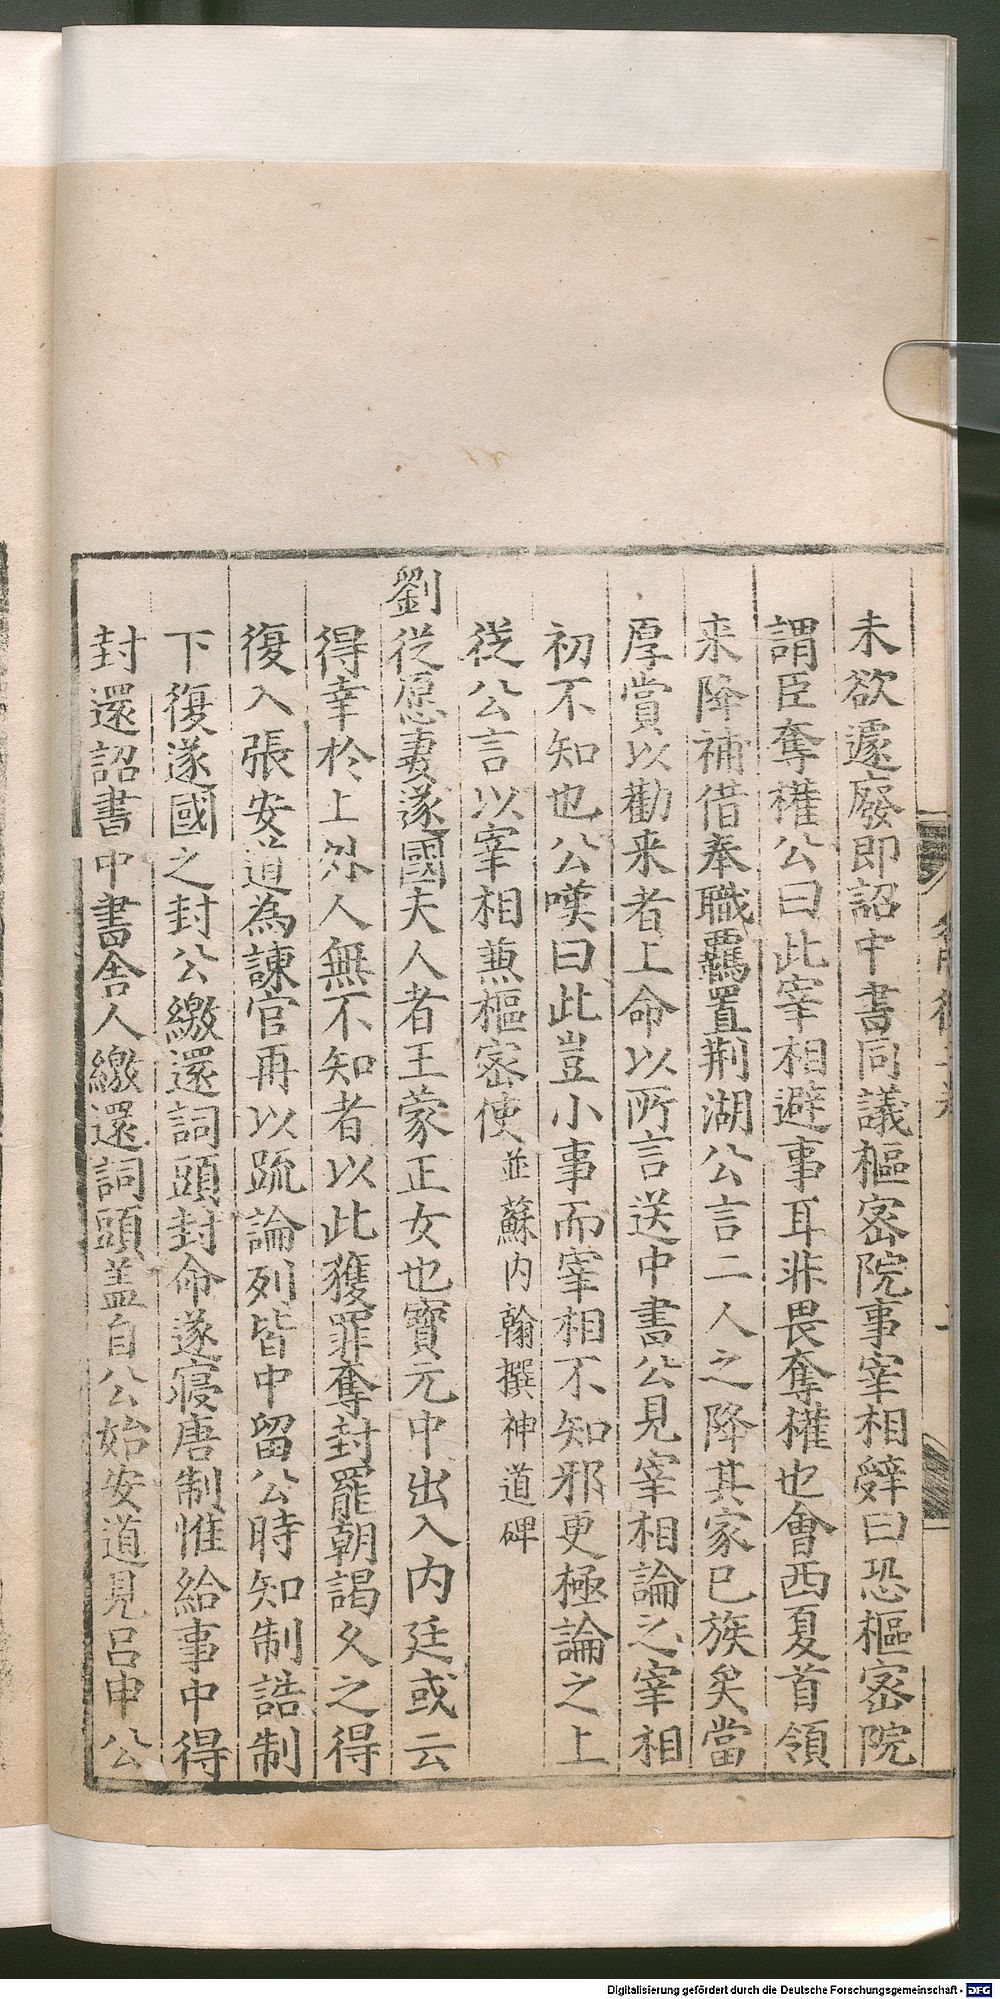 未欲遽廢即詔中書同議樞密院事宰相辭曰恐樞密院
謂臣奪權公曰此宰相避事耳非畏奪權也會西夏首領
来降補借奉職羈置荆湖公言二人之降其家已族矣當
厚賞以勸来者上命以所言送中書公見宰相論之宰相
初不知也公嘆曰此豈小事而宰相不知邪更極論之上
從公言以宰相兼樞密使並蘇内翰撰神道碑
劉從愿妻遂國夫人者王蒙正女也寳元中出入内廷或云
得幸於上外人無不知者以此獲罪奪封罷朝謁久之得
復入張安道為諫官再以疏論列皆中留公時知制誥制
下復遂國之封公繳還詞頭封命遂寢唐制惟給事中得
封還詔書中書舍人繳還詞頭盖自公始安道見吕申公
Digitalisierung gefördert durch die Deutsche Forschungsgemeinschaft - DFG